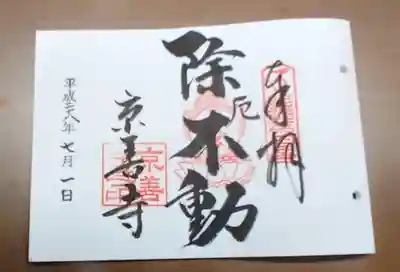 奉拝
除厄不動
京善寺
平成二八年七月一日
京善